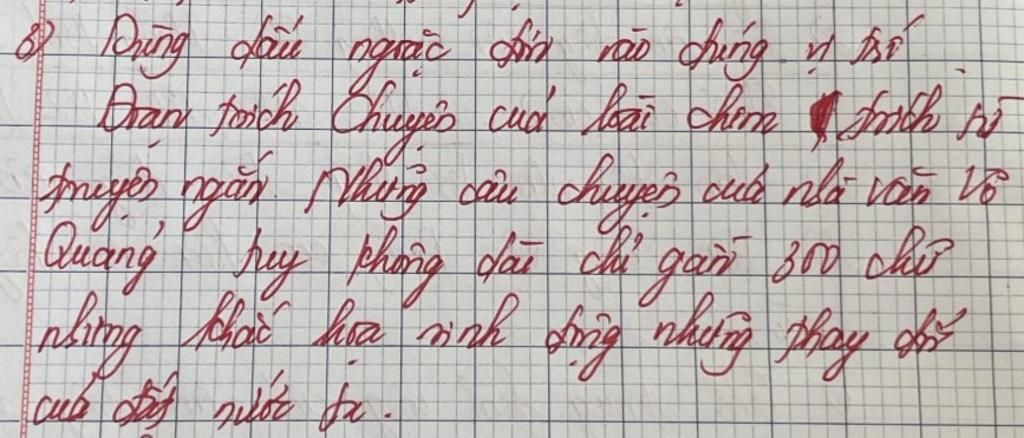 8) Dùng dấu ngoặc đơn vào đúng vị trí
Đoạn trích Chuyện của loài chim trích từ
truyện ngắn. Những câu chuyện của nhà văn Võ
Quảng tuy không dài chỉ gần 300 chữ
nhưng khắc họa sinh động những thay đổi
của đất nước ta.